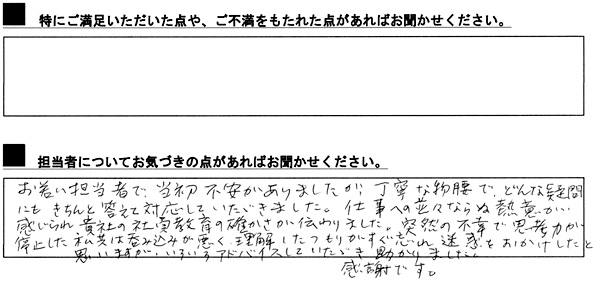 ■ 特にご満足いただいた点や、ご不満をもたれた点があればお聞かせください。
■ 担当者についてお気づきの点があればお聞かせください。
お若い担当者で、当初不安がありましたが、丁寧な物腰で、どんな疑問
にもきちんと答えて対応していただきました。仕事への並々ならぬ熱意が
感じられ貴社の社員教育の確かさが伝わりました。突然の不幸で思考力が
停止した私共は呑み込みが悪く、理解したつもりがすぐ忘れ迷惑をおかけしたと
思いますが、いろいろアドバイスしていただき助かりました。
感謝です。